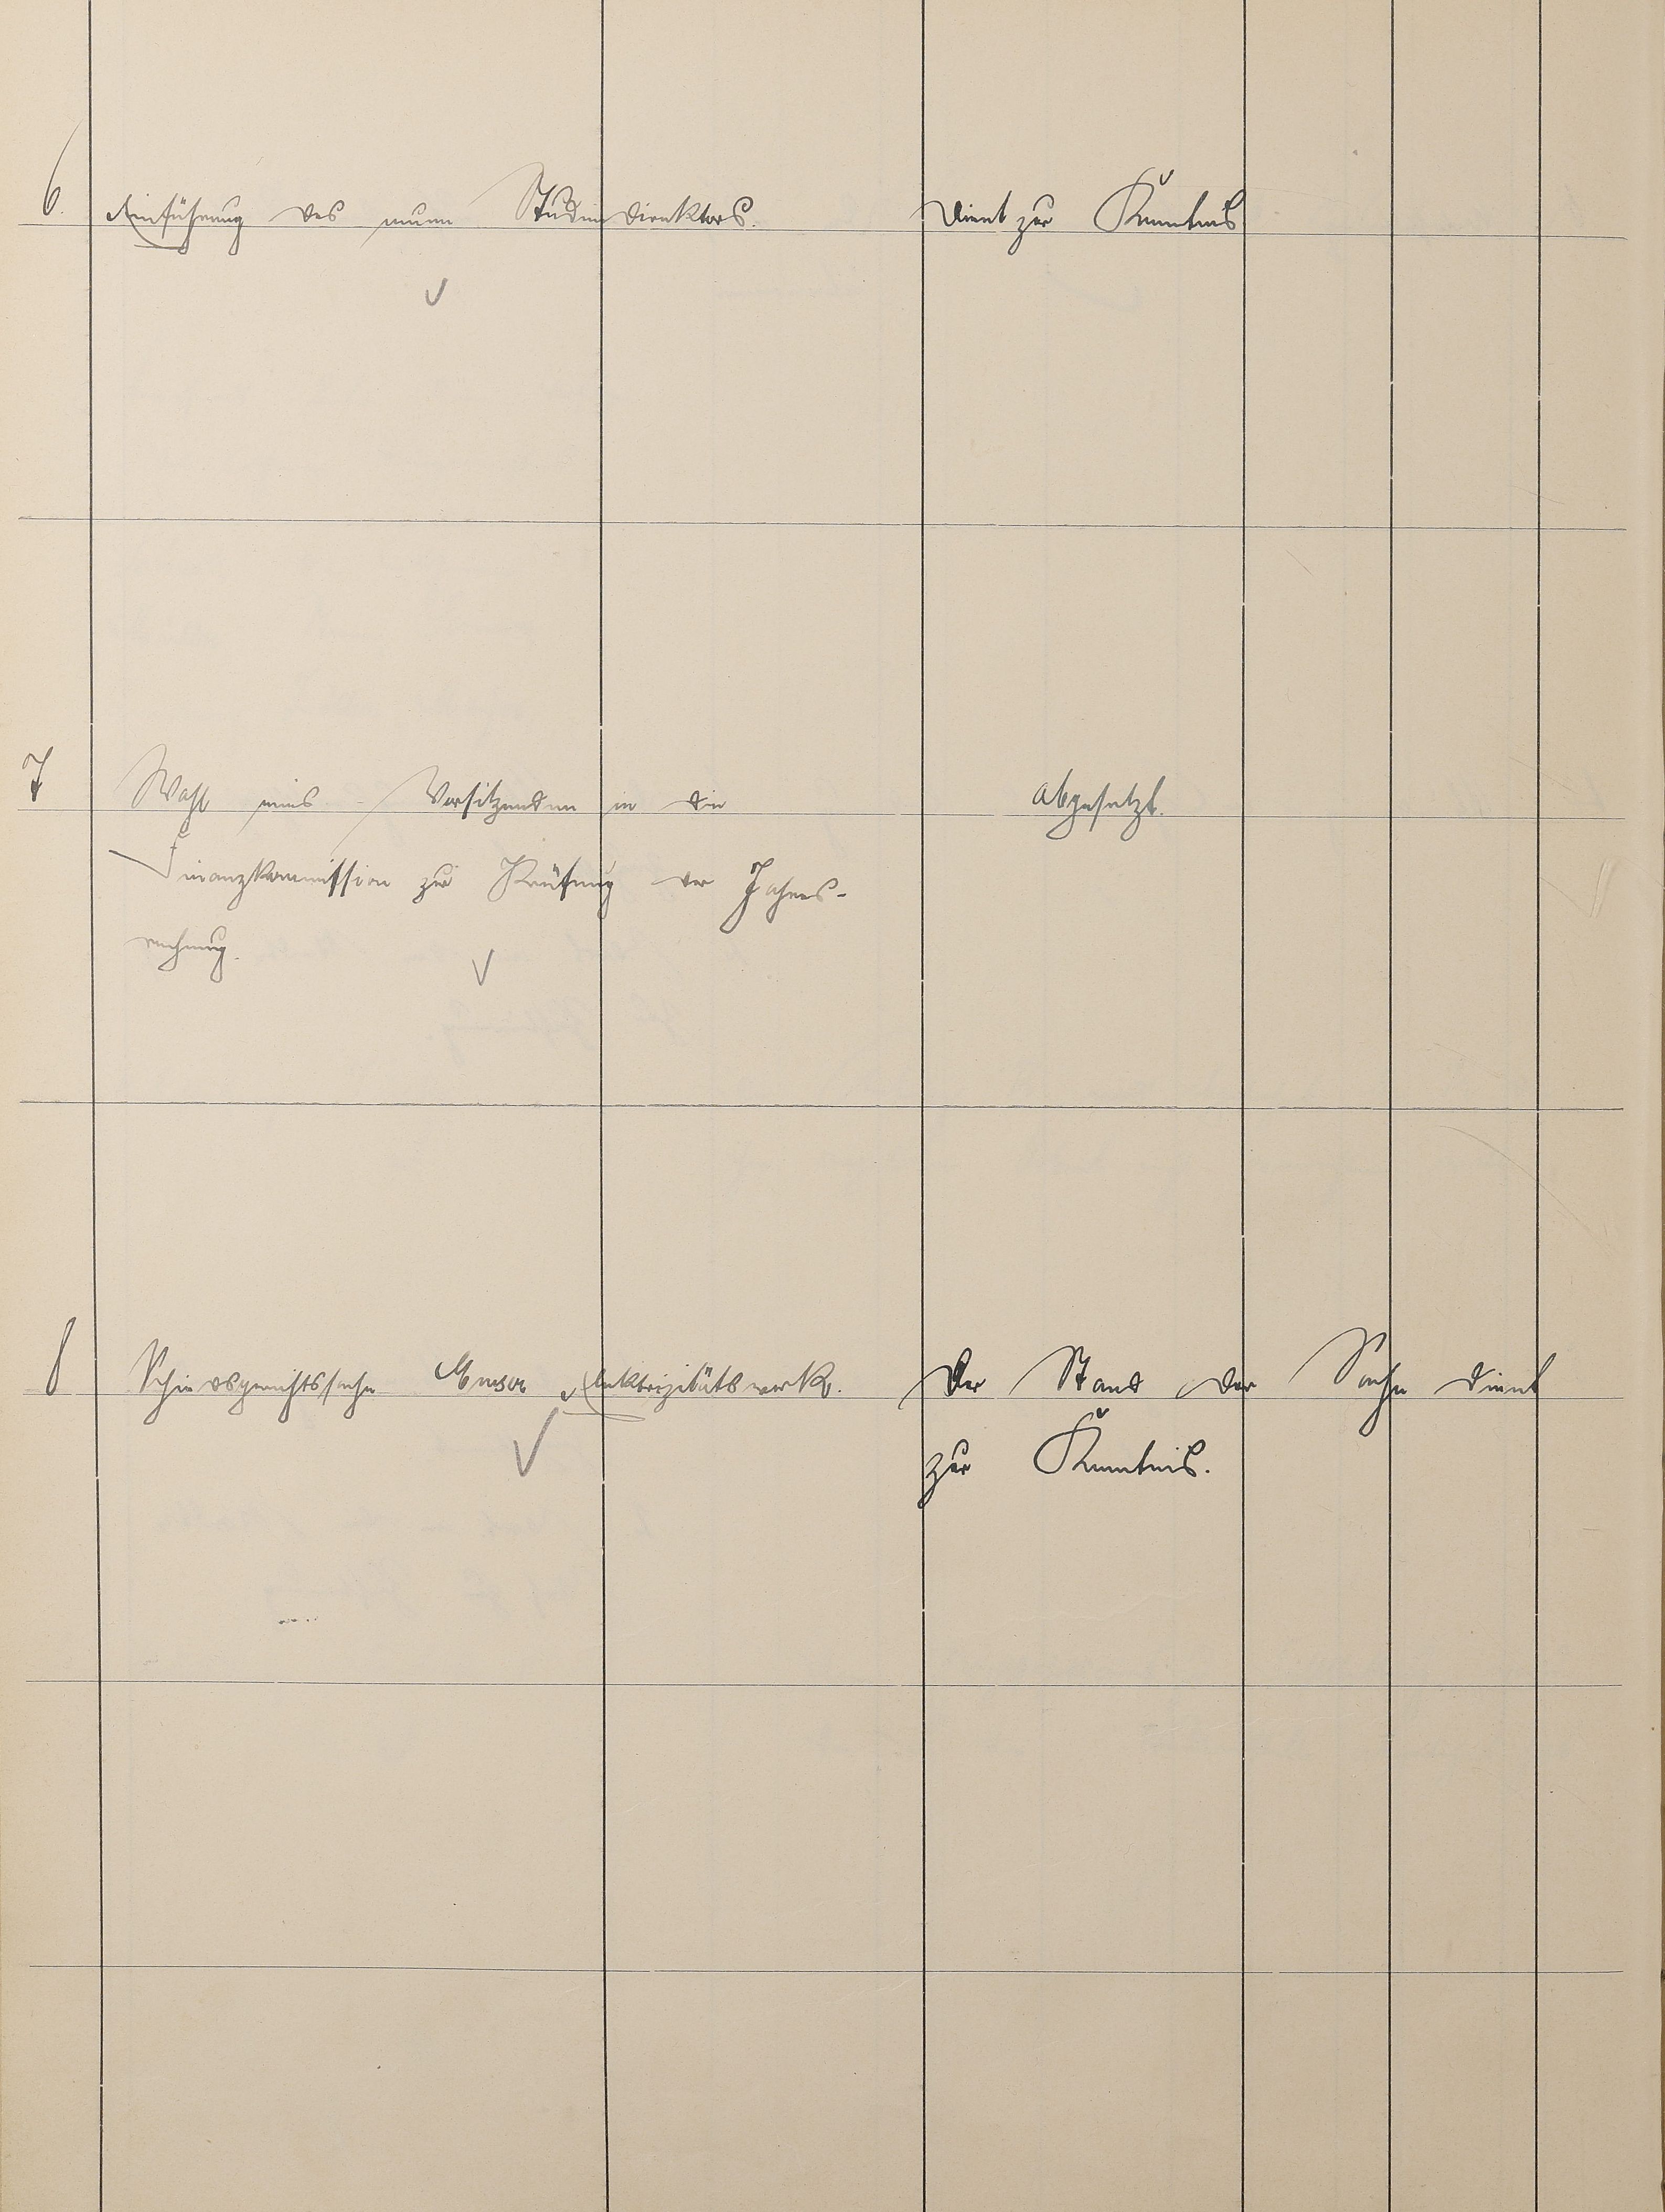 6. Einführung des neuen Studiendirektors. Dient zur Kenntnis
7 Wahl eines Vorsitzenden in die abgesetzt.
Finanzkommission zur Prüfung der Jahres-
rechnung.
8 Schiedsgerichtssache Elektrizitätswerk. Der Stand der Sache dient
zur Kenntnis.